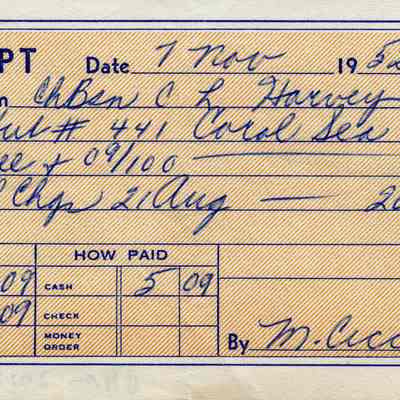 PT Date 7 Nov 1952
m ChBsn C L Harvey
# 441 Coral Sea
ee + 09/100
Chgs 21 Aug — 20
HOW PAID
09 CASH 5 09
09 CHECK
MONEY ORDER
By M.